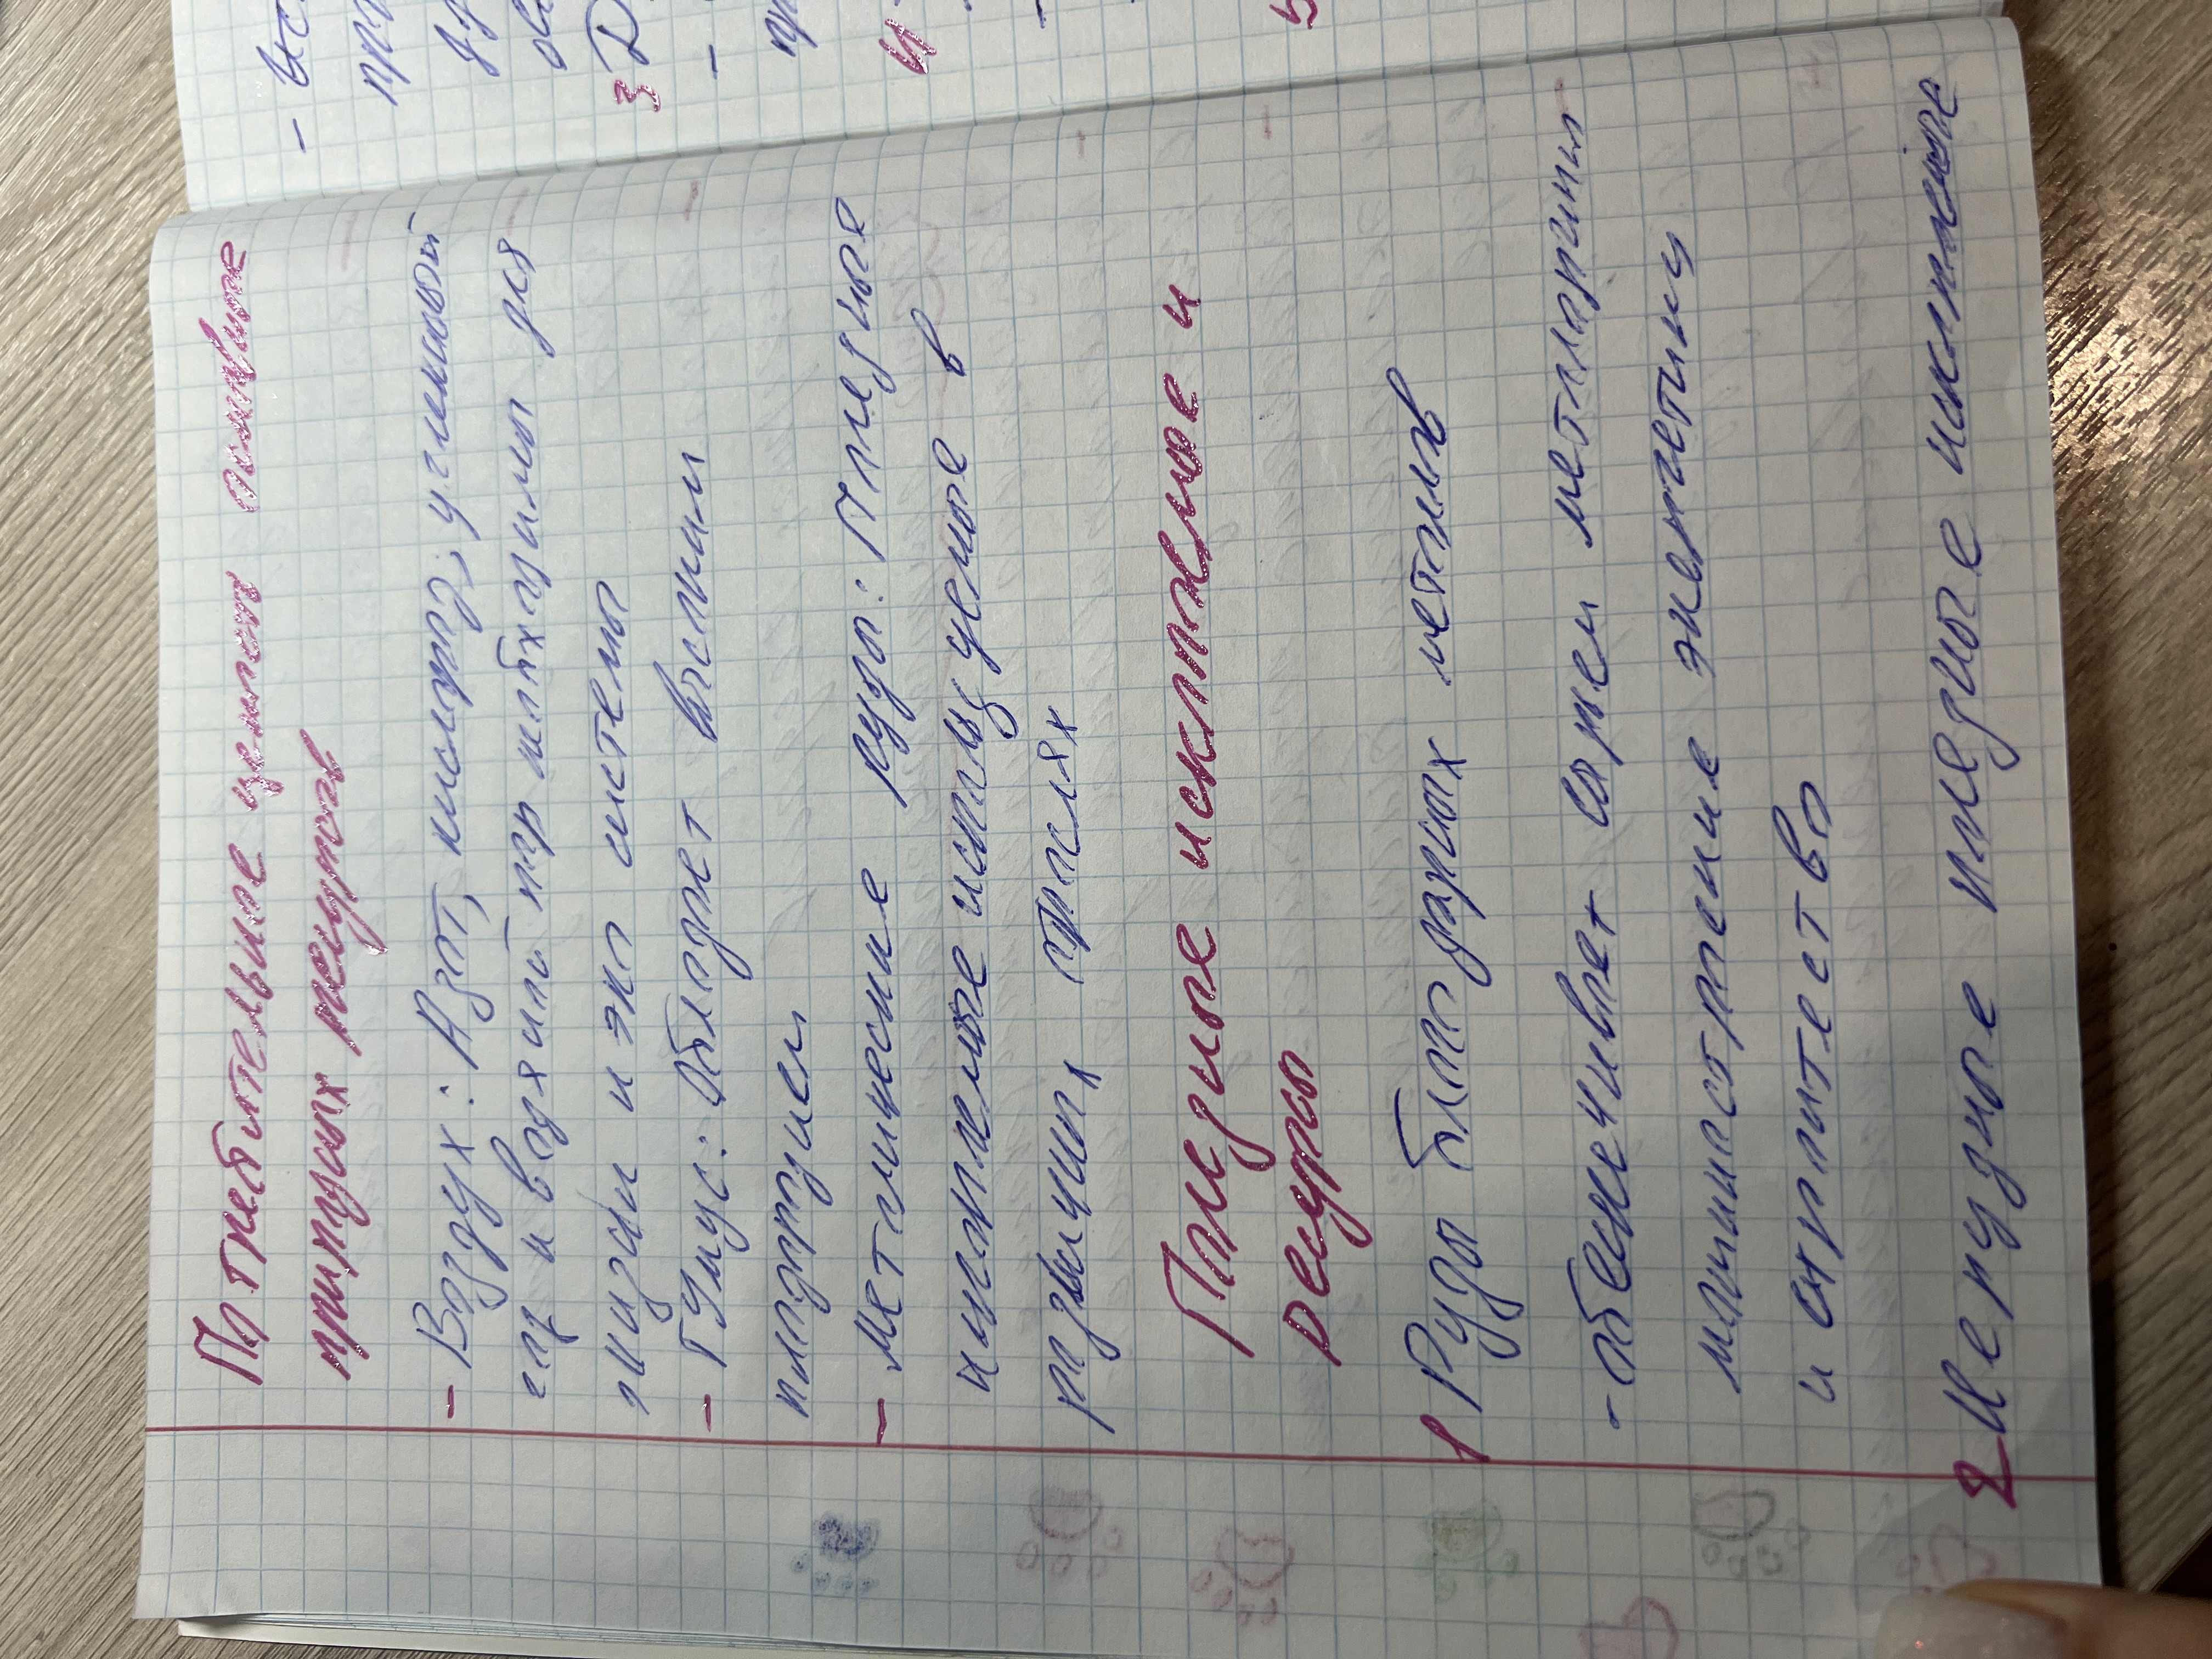 Потребительные ценност основные
природных ресурсов
- Воздух: Азот, кислород, углекислый
газ и водяной пар необходимы для
жизни и эко системы
- Гумус: Обладает высоким
плодородием
- Металлические руды: Полезные
ископаемые используемые в
различных отраслях
Полезные ископаемые и
ресурсы
1 Руды благородных металов
- обеспечивает сырьем металлургия
машиностроение энергетику
и строительство
2 Нерудные полезные ископаемые
- ис
3 До
-
4
-
5